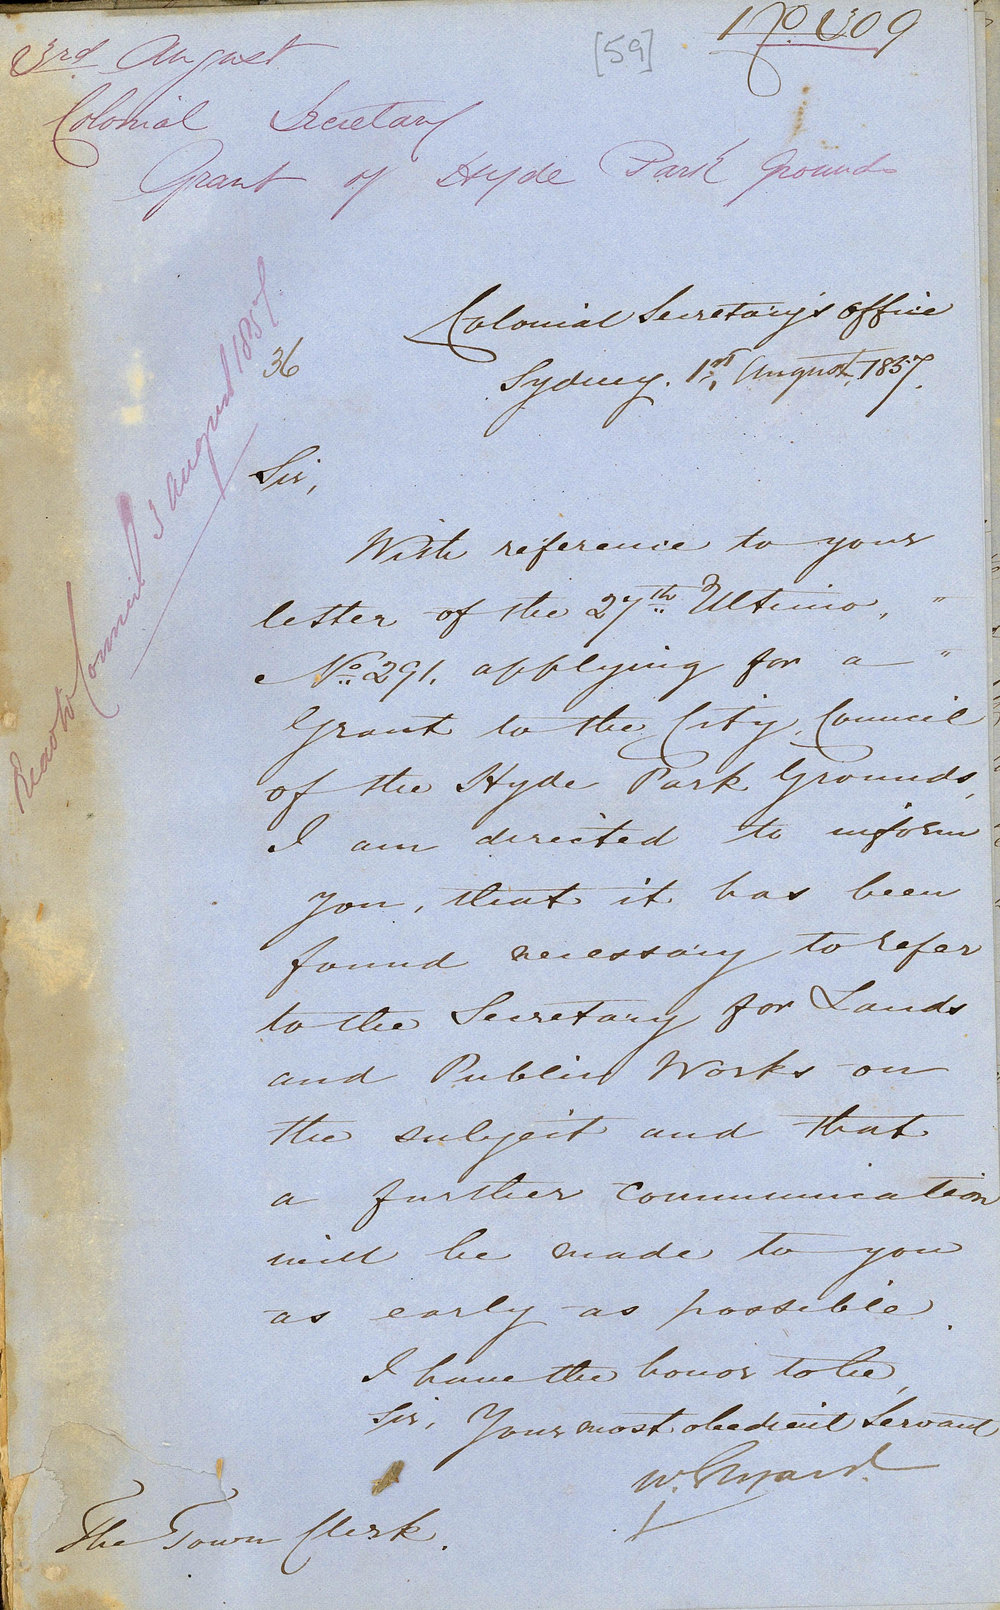 No. 309
[59]
3rd August
Colonial Secretary
Grant of Hyde Park Grounds
Read to Council 3 August 1857
Colonial Secretary's Office
36
Sydney. 1st, August, 1857.
Sir,
With reference to your
letter of the 27th Ultimo, "
No. 291. applying for a "
Grant to the City Council
of the Hyde Park Grounds,
I am directed to inform
you, that it has been
found necessary to refer
to the Secretary for Lands
and Public Works on
the subject and that
a further communication
will be made to you
as early as possible.
I have the honor to be,
Sir, Your most obedient Servant
W. Elyard.
The Town Clerk.